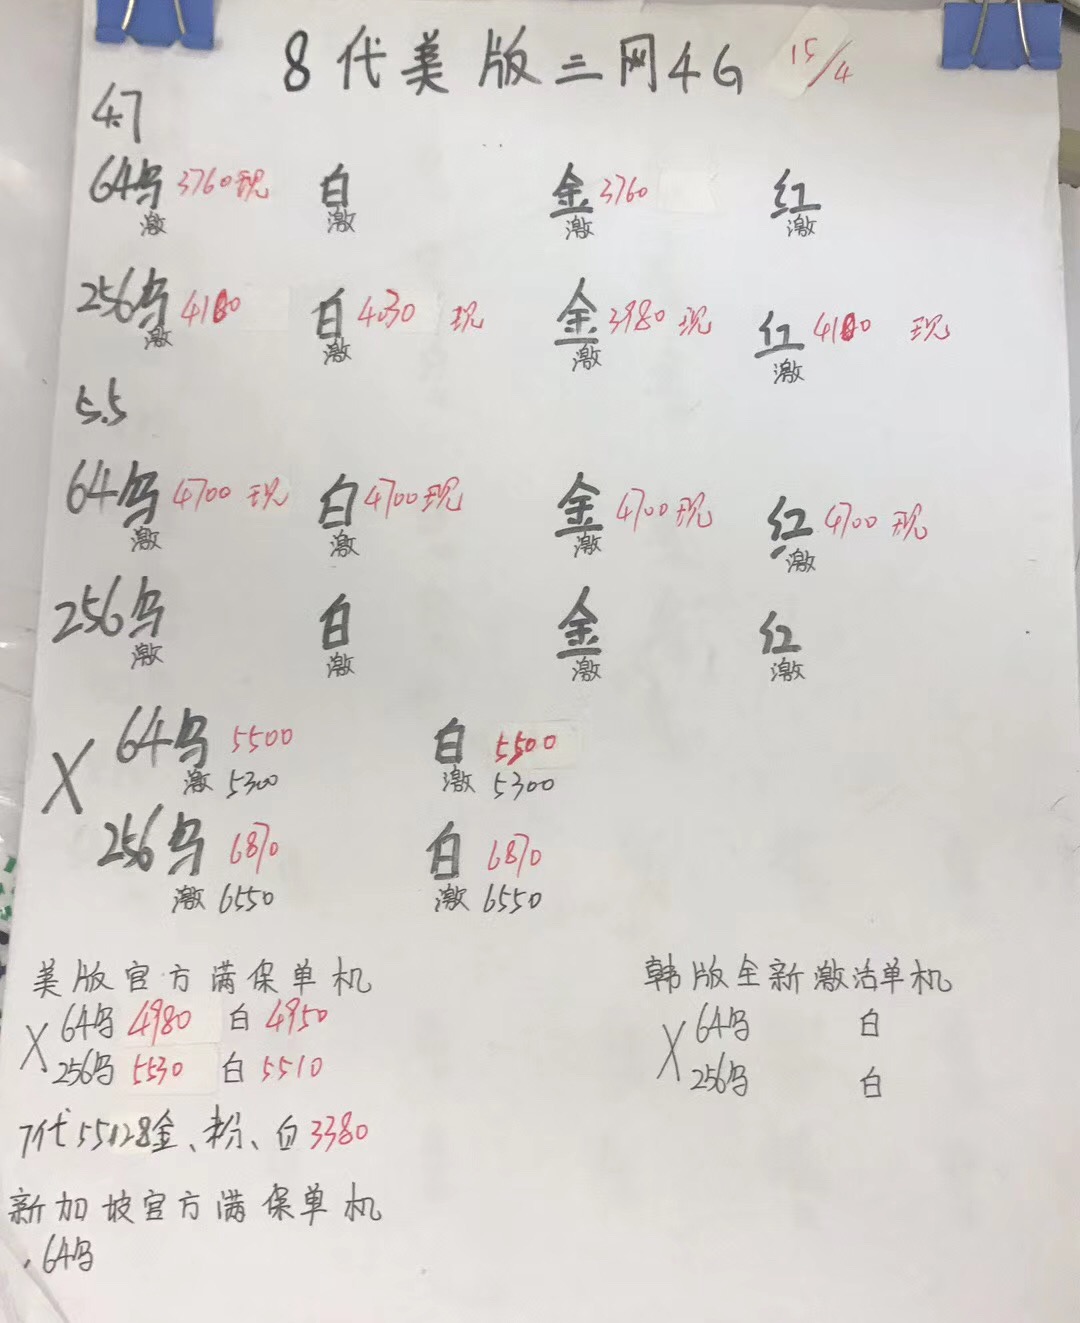 8代美版三网4G 15/4
4.7
64乌 3760现 白 金 3760 红
激 激 激 激
256乌 4180 白 4030 现 金 3980 现 红 4180 现
激 激 激 激
5.5
64乌 4700 现 白 4700现 金 4700现 红 4700 现
激 激 激 激
256乌 白 金 红
激 激 激 激
X 64乌 5500 白 5500
激 5300 激 5300
256乌 6870 白 6870
激 6550 激 6550
美版官方满保单机
X 64乌 4980 白 4950
256乌 5530 白 5510
7代55128金、粉、白3380
新加坡官方满保单机
.64乌
韩版全新激活单机
X 64乌 白
256乌 白